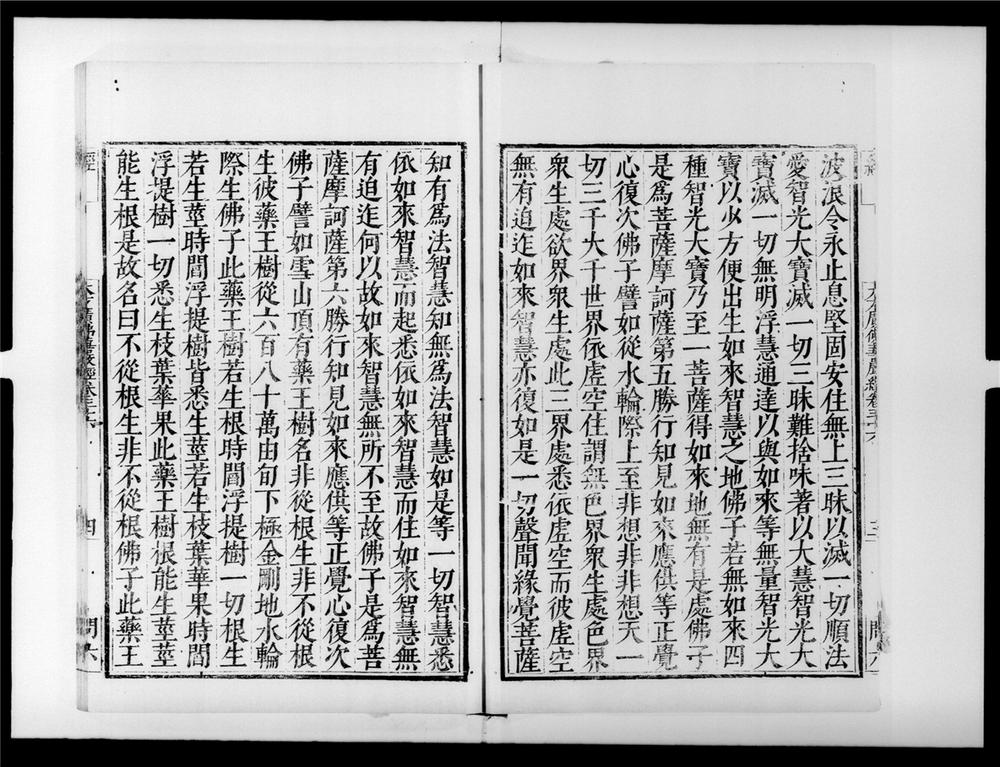 波浪令永止息堅固安住無上三昧以滅一切順法
愛智光大寶滅一切三昧難捨味著以大慧智光大
寶滅一切無明浮慧通達以與如來等無量智光大
寶以少方便出生如來智慧之地佛子若無如來四
種智光大寶乃至一菩薩得如來地無有是處佛子
是為菩薩摩訶薩第五勝行知見如來應供等正覺
心復次佛子譬如從水輪際上至非想非非想天一
切三千大千世界依虛空住謂無色界眾生處色界
眾生處欲界眾生處此三界處悉依虛空而彼虛空
無有迫迮如來智慧亦復如是一切聲聞緣覺菩薩
大方廣佛華嚴經卷三十六
三
問六
知有為法智慧知無為法智慧如是等一切智慧悉
依如來智慧而起悉依如來智慧而住如來智慧無
有迫迮何以故如來智慧無所不至故佛子是為菩
薩摩訶薩第六勝行知見如來應供等正覺心復次
佛子譬如雪山頂有藥王樹名非從根生非不從根
生彼藥王樹從六百八十萬由旬下極金剛地水輪
際生佛子此藥王樹若生根時閻浮提樹一切根生
若生莖時閻浮提樹皆悉生莖若生枝葉華果時閻
浮提樹一切悉生枝葉華果此藥王樹根能生莖莖
能生根是故名曰不從根生非不從根佛子此藥王
經
大方廣佛華嚴經卷三十六
四
問六